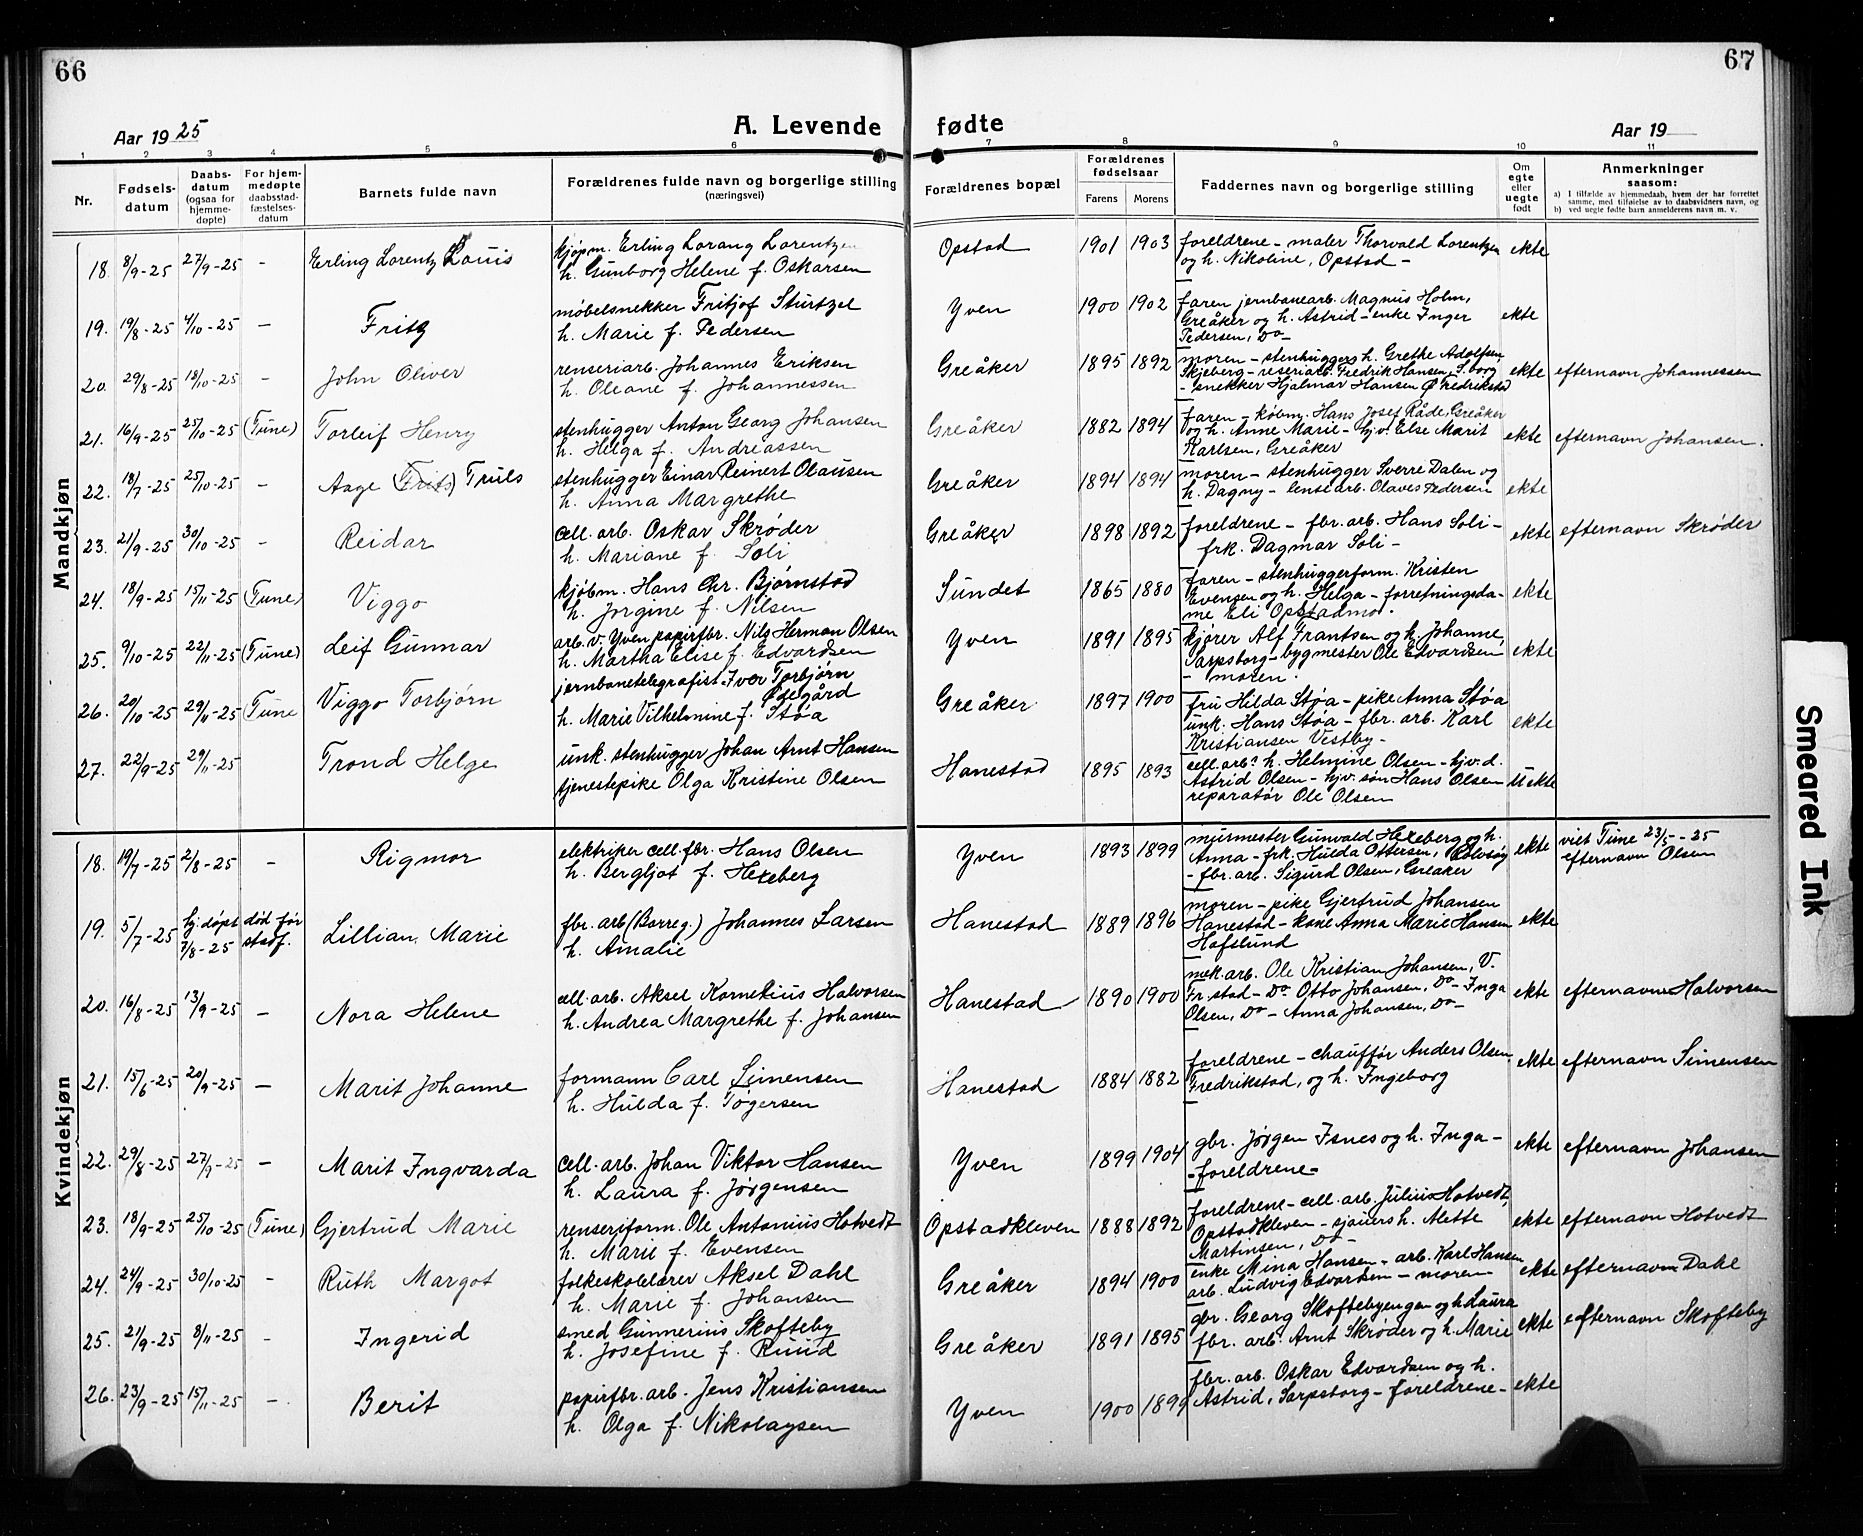 66
67
Aar 1925
A. Levende fødte
Aar 19
1 2 3 4 5 6 7 8 9 10 11
Nr.
Fødselsdatum
Daabsdatum (ogsaa for hjemmedøpte)
For hjemmedøpte daabsstadfæstelsesdatum
Barnets fulde navn
Forældrenes fulde navn og borgerlige stilling (næringsvei)
Forældrenes bopæl
Forældrenes fødselsaar
Farens Morens
Faddernes navn og borgerlige stilling
Om egte eller uegte født
Anmerkninger saasom:
a) I tilfælde av hjemmedaab, hvem der har forrettet samme, med tilføielse av to daabsvidners navn, og
b) ved uegte fødte barn anmelderens navn m. v.
Mandkjøn
18. 8/9-25 27/9-25 - Erling Lorentz Louis
kjøpm. Erling Lorang Lorentzen
h. Gunborg Helene f. Oskarsen
Opstad 1901 1903
foreldrene - maler Thorvald Lorentzen
og h. Nikoline, Opstad -
ekte
19. 19/8-25 4/10-25 - Fritz
møbelsnekker Fritjof Sturtzel
h. Marie f. Pedersen
Yven 1900 1902
faren jernbanearb. Magnus Holm,
Greåker og h. Astrid - enke Inger
Pedersen, Do -
ekte
20. 29/8-25 18/10-25 - John Oliver
renseriarb. Johannes Eriksen
h. Oleane f. Johannessen
Greåker 1895 1892
moren - stenhuggers h. Grethe Adolfsen
Skjeberg - reseriarb. Fredrik Hansen, S.borg
- snekker Hjalmar Hansen Ø Fredrikstad
ekte efternavn Johannessen
21. 16/9-25 25/10-25 (Tune) Torleif Henry
stenhugger Anton Georg Johansen
h. Helga f. Andreassen
Greåker 1882 1894
faren - købm. Hans Josef Råde, Greåker
og h. Anne Marie - hjv. Else Marit
Karlsen, Greåker
ekte efternavn Johansen.
22. 18/7-25 25/10-25 - Aage (Frits) Truls
stenhugger Einar Reinert Olausen
h. Anna Margrethe
Greåker 1894 1894
moren - stenhugger Sverre Dalen og
h. Dagny - lensearb. Olaves Pedersen
ekte
23. 21/9-25 30/10-25 - Reidar
cell. arb. Oskar Skrøder
h. Mariane f. Soli
Greåker 1898 1892
foreldrene - fbr. arb. Hans Soli -
frk. Dagmar Soli -
ekte efternavn Skrøder
24. 18/9-25 15/11-25 (Tune) Viggo
kjøbm. Hans Chr. Bjørnstad
h. Jorgine f. Nilsen
Sundet 1865 1880
faren - stenhuggerform. Kristen
Evensen og h. Helga - forretningsda-
me Eli Opstadmo.
ekte
25. 9/10-25 22/11-25 (Tune) Leif Gunnar
arb. v. Yven papirfbr. Nils Herman Olsen
h. Martha Elise f. Edvardsen
Yven 1891 1895
kjører Alf Frantsen og h. Johanne,
Sarpsborg - bygmester Ole Edvardsen
- moren.
ekte
26. 20/10-25 29/11-25 Tune Viggo Torbjørn
jernbanetelegrafist Iver Torbjørn
Ødegård
h. Marie Vilhelmine f. Støa
Greåker 1897 1900
fru Hilda Støa - pike Anna Støa
unk. Hans Støa - fbr. arb. Karl
Kristiansen Vestby -
ekte
27. 22/9-25 29/11-25 Trond Helge
unk. stenhugger Johan Arnt Hansen
tjenestepike Olga Kristine Olsen
Hanestad 1895 1893
cell. arb? h. Helmine Olsen - hjv. d.
Astrid Olsen - hjv. søn Hans Olsen
reparatør Ole Olsen
uekte
Kvindekjøn
18. 19/7-25 2/8-25 - Rigmor
elektriker cell. fbr. Hans Olsen
h. Bergljot f. Hexeberg
Yven 1893 1899
murmester Gunvald Hexeberg og h.
Anna - frk. Hulda Ottersen, Rolvsøy
- fbr. arb. Sigurd Olsen, Greåker
ekte viet Tune 23/5-25
efternavn Olsen
19. 5/7-25 hj. døpt 7/8-25 død før stadf. Lillian Marie
fbr. arb (Borreg.) Johannes Larsen
h. Amalie
Hanestad 1889 1896
moren - pike Gjertrud Johansen
Hanestad - kone Anna Marie Hansen
Hafslund
ekte
20. 16/8-25 13/9-25 - Nora Helene
cell. arb. Aksel Kornelius Halvorsen
h. Andrea Margrethe f. Johansen
Hanestad 1890 1900
mek. arb. Ole Kristian Johansen, V.
Fr.stad - Do Otto Johansen, Do - Inga
Olsen, Do - Anna Johansen, Do -
ekte efternavn Halvorsen
21. 15/6-25 20/9-25 - Marit Johanne
formann Carl Simensen
h. Hulda f. Tøgersen
Hanestad 1884 1882
foreldrene - chauffør Anders Olsen,
Fredrikstad, og h. Ingeborg
ekte efternavn Simensen
22. 29/8-25 27/9-25 - Marit Ingvarda
cell. arb. Johan Viktor Hansen
h. Laura f. Jørgensen
Yven 1899 1904
gbr. Jørgen Isnes og h. Inga -
- foreldrene -
ekte efternavn Johansen
23. 18/9-25 25/10-25 (Tune) Gjertrud Marie
renseriform. Ole Antonius Hotvedt
h. Marie f. Evensen
Opstadkleven 1888 1892
foreldrene - cell. arb. Julius Hotvedt,
Opstadkleven - sjauers h. Alette
Martinsen, Do -
ekte efternavn Hotvedt
24. 24/9-25 30/10-25 - Ruth Margot
folkeskolelærer Aksel Dahl
h. Marie f. Johansen
Greåker 1894 1900
enke Mina Hansen - arb. Karl Hansen
arb. Ludvig Edvardsen - moren
ekte efternavn Dahl
25. 21/9-25 8/11-25 - Ingerid
smed Gunnerius Skofteby
h. Josefine f. Ruud
Greåker 1891 1895
gbr. Georg Skoftebyengen og h Laura
fbr. arb. Arnt Skrøder og h. Marie
ekte efternavn Skofteby
26. 23/9-25 15/11-25 - Berit
papirfbr. arb. Jens Kristiansen
h. Olga f. Nikolaysen
Yven 1900 1899
fbr. arb. Oskar Edvardsen og h.
Astrid, Sarpsborg - foreldrene -
ekte
Smeared Ink